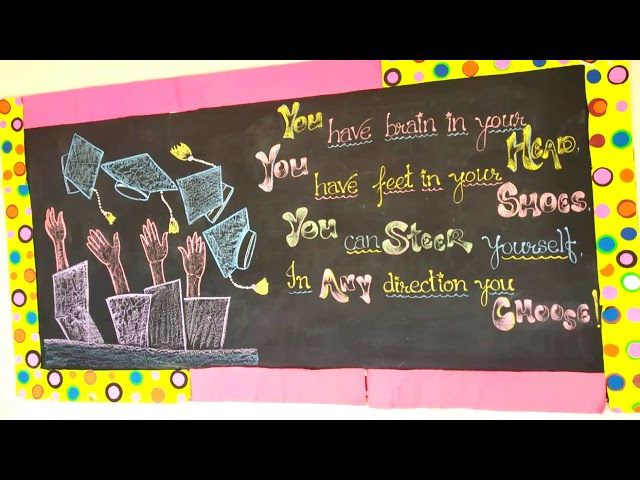 You have brain in your
HEAD.
You have feet in your
SHOES.
You can STEER yourself,
In ANY direction you
CHOOSE!